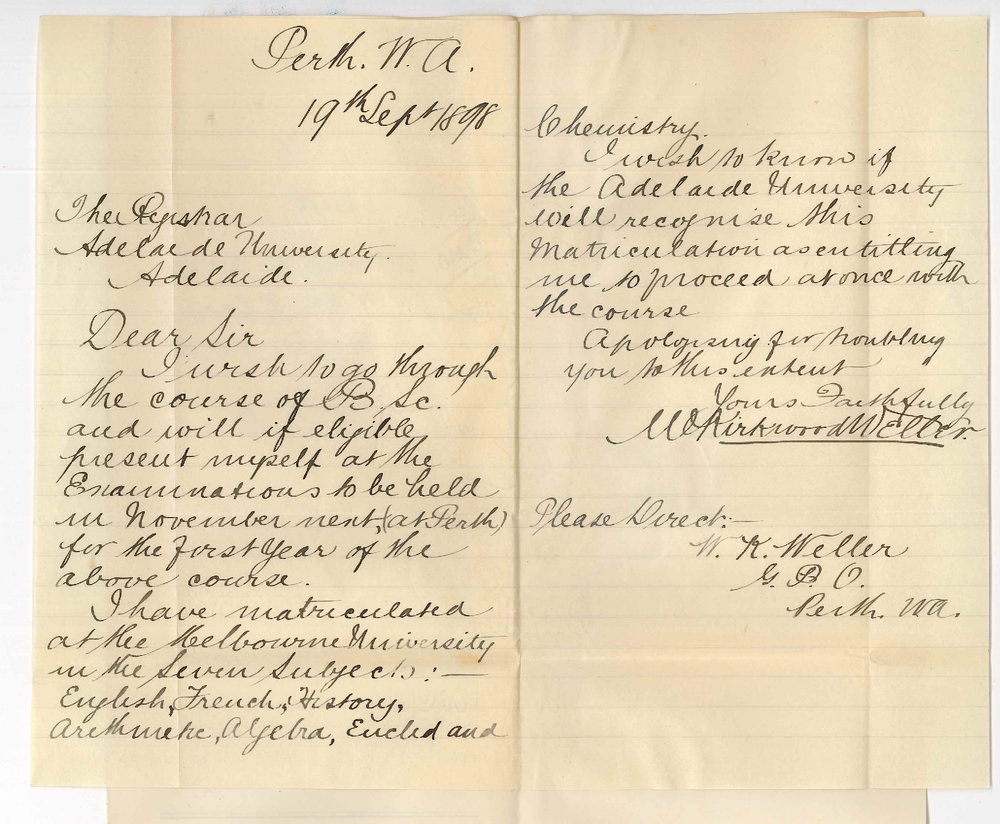 Perth. W. A.
19th Sept 1898
The Registrar
Adelaide University.
Adelaide.
Dear Sir
I wish to go through
the course of B. Sc.
and will if eligible
present myself at the
Examinations to be held
in November next, (at Perth)
for the first Year of the
above course.
I have matriculated
at the Melbourne University
in the Seven Subjects: —
English, French, History,
Arithmetic, Algebra, Euclid and
Chemistry.
I wish to know if
the Adelaide University
will recognise this
Matriculation as entitling
me to proceed at once with
the course
Apologising for troubling
you to this extent
Yours Faithfully
Kirkwood Weller
Please Direct: —
W. K. Weller
G. P. O.
Perth. WA.